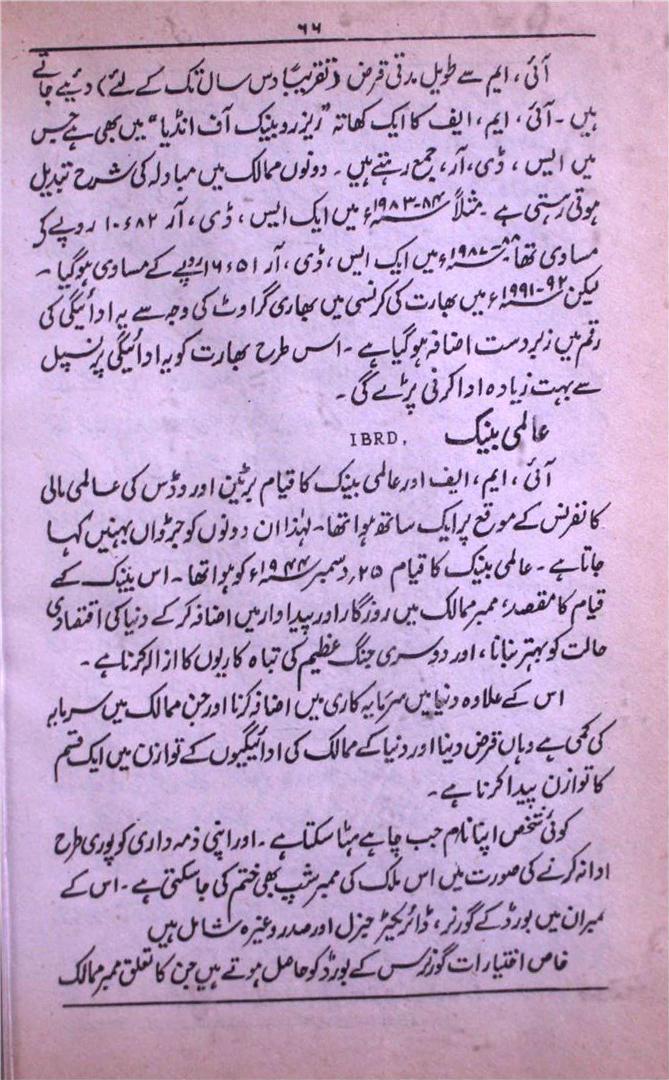 ۶۶
آئی، ایم سے طویل مدتی قرض (تقریباً دس سال تک کے لئے) دیئیے جاتے
ہیں۔ آئی، ایم، ایف کا ایک کھاتہ "ریزرو بینک آف انڈیا" میں بھی ہے جس
میں ایس، ڈی، آر، جمع رہتے ہیں۔ دونوں ممالک میں مبادلہ کی شرح تبدیل
ہوتی رہتی ہے مثلاً ۸۴-۱۹۸۳ء میں ایک ایس، ڈی، آر ۱۰ء۸۲ روپے کے
مساوی تھا ۸۸-۱۹۸۷ء میں ایک ایس، ڈی، آر ۱۶ء۵۱ روپے کے مساوی ہو گیا۔
لیکن ۹۲-۱۹۹۱ء میں بھارت کی کرنسی میں بھاری گراوٹ کی وجہ سے یہ ادائیگی کی
رقم میں زبردست اضافہ ہو گیا ہے۔ اس طرح بھارت کو یہ ادائیگی پرنسپل
سے بہت زیادہ ادا کرنی پڑے گی۔
عالمی بینک IBRD,
آئی، ایم، ایف اور عالمی بینک کا قیام برٹین اور وڈس کی عالمی مالی
کانفرنس کے موقع پر ایک ساتھ ہوا تھا۔ لہٰذا ان دونوں کو جڑواں بہنیں کہا
جاتا ہے۔ عالمی بینک کا قیام ۲۵؍ دسمبر ۱۹۴۴ء کو ہوا تھا۔ اس بینک کے
قیام کا مقصد، ممبر ممالک میں روزگار اور پیداوار میں اضافہ کر کے دنیا کی اقتصادی
حالت کو بہتر بنانا، اور دوسری جنگ عظیم کی تباہ کاریوں کا ازالہ کرنا ہے۔
اس کے علاوہ دنیا میں سرمایہ کاری میں اضافہ کرنا اور جن ممالک میں سرمایہ
کی کمی ہے وہاں قرض دینا اور دنیا کے ممالک کی ادائیگیوں کے توازن میں ایک قسم
کا توازن پیدا کرنا ہے۔
کوئی شخص اپنا نام جب چاہے ہٹا سکتا ہے۔ اور اپنی ذمہ داری کو پوری طرح
ادا نہ کرنے کی صورت میں اس ملک کی ممبر شپ بھی ختم کی جا سکتی ہے۔ اس کے
ممبران میں بورڈ کے گورنر، ڈائریکٹر جنرل اور صدر وغیرہ شامل ہیں
خاص اختیارات گورنرس کے بورڈ کو حاصل ہوتے ہیں جن کا تعلق ممبر ممالک